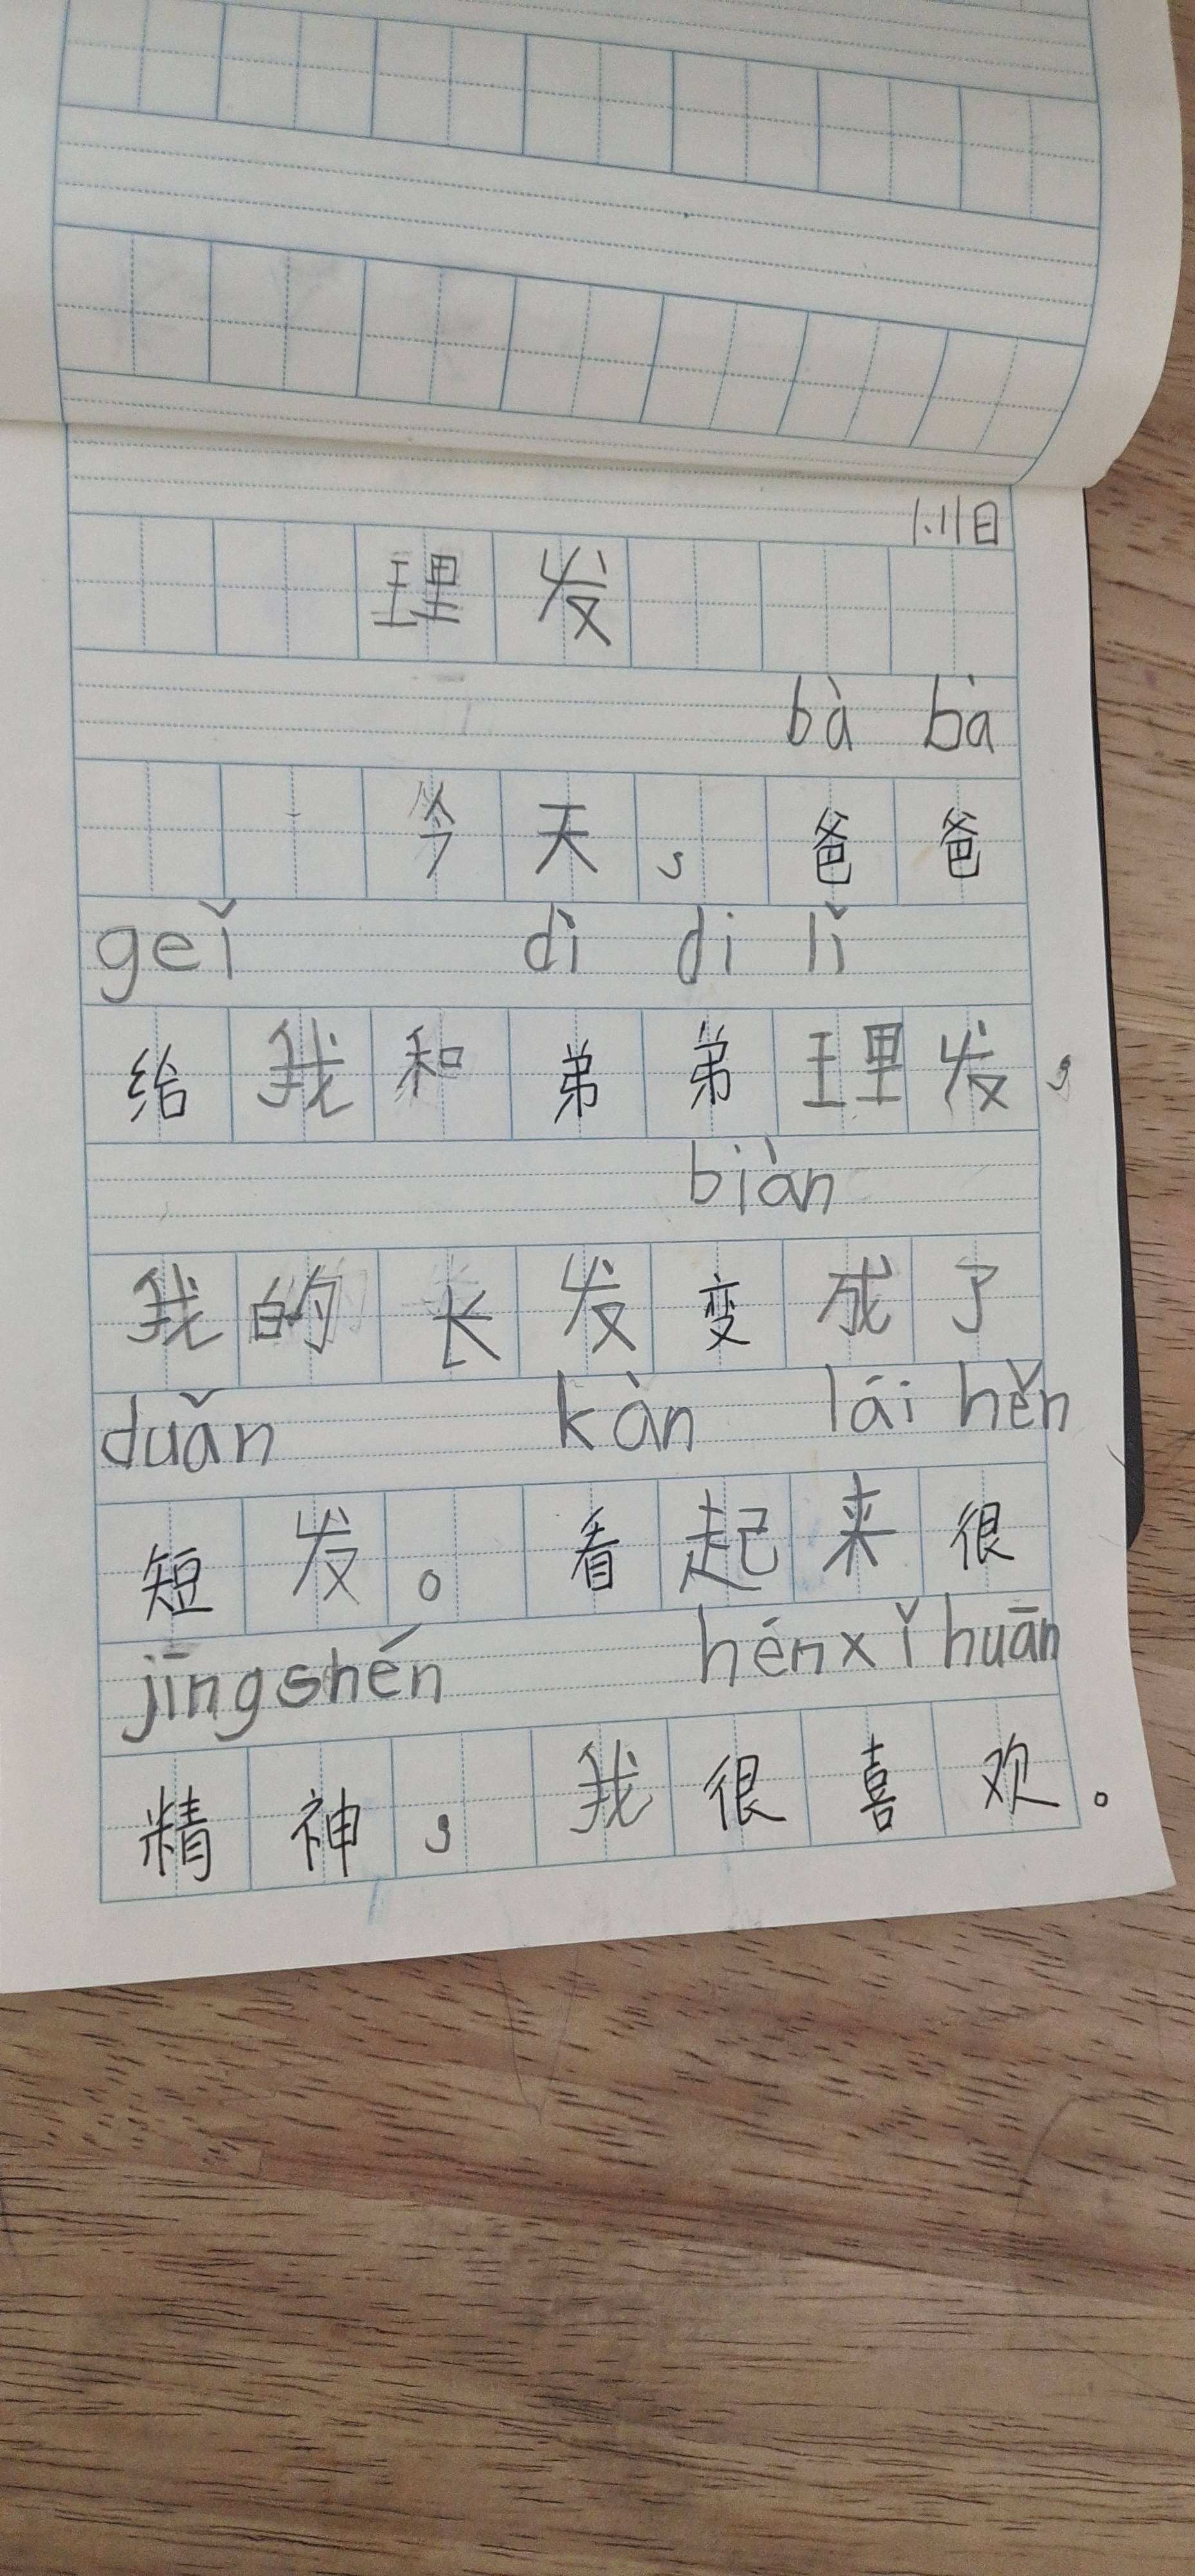 1.11日
理发
bà bà
今天，爸爸
geǐ dì di lǐ
给我和弟弟理发，
biàn
我的长发变成了
duǎn kàn lái hěn
短发。看起来很
jīngshén hénxǐhuān
精神，我很喜欢。